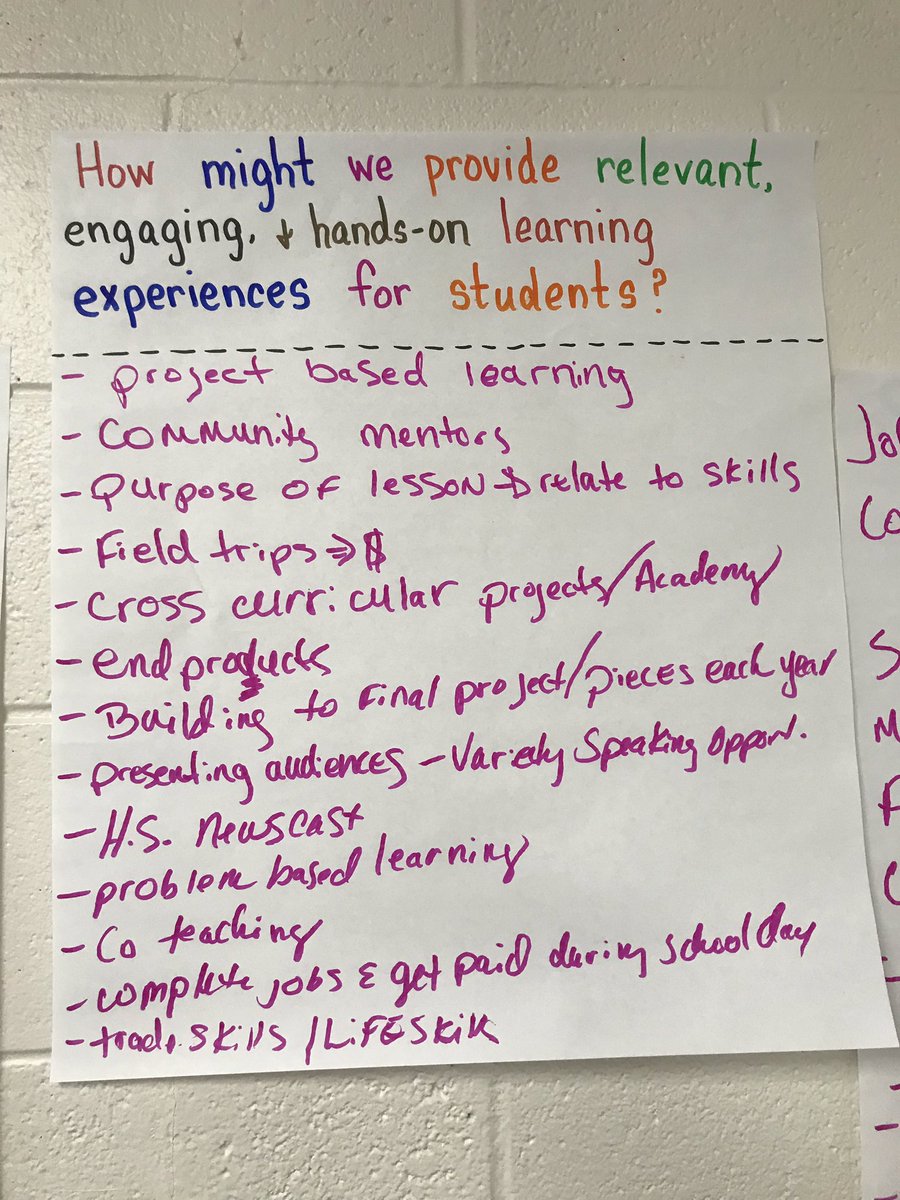 How might we provide relevant,
engaging, & hands-on learning
experiences for students?
- project based learning
- Community mentors
- Purpose of lesson & relate to skills
- Field trips ⇒ $
- Cross curricular projects/Academy
- end products
- Building to Final project/pieces each year
- presenting audiences - Variety Speaking Opport.
- H.S. Newscast
- problem based learning
- Co teaching
- complete jobs & get paid during school day
- trade skills / LiFESKill
Jo
Co
S
M